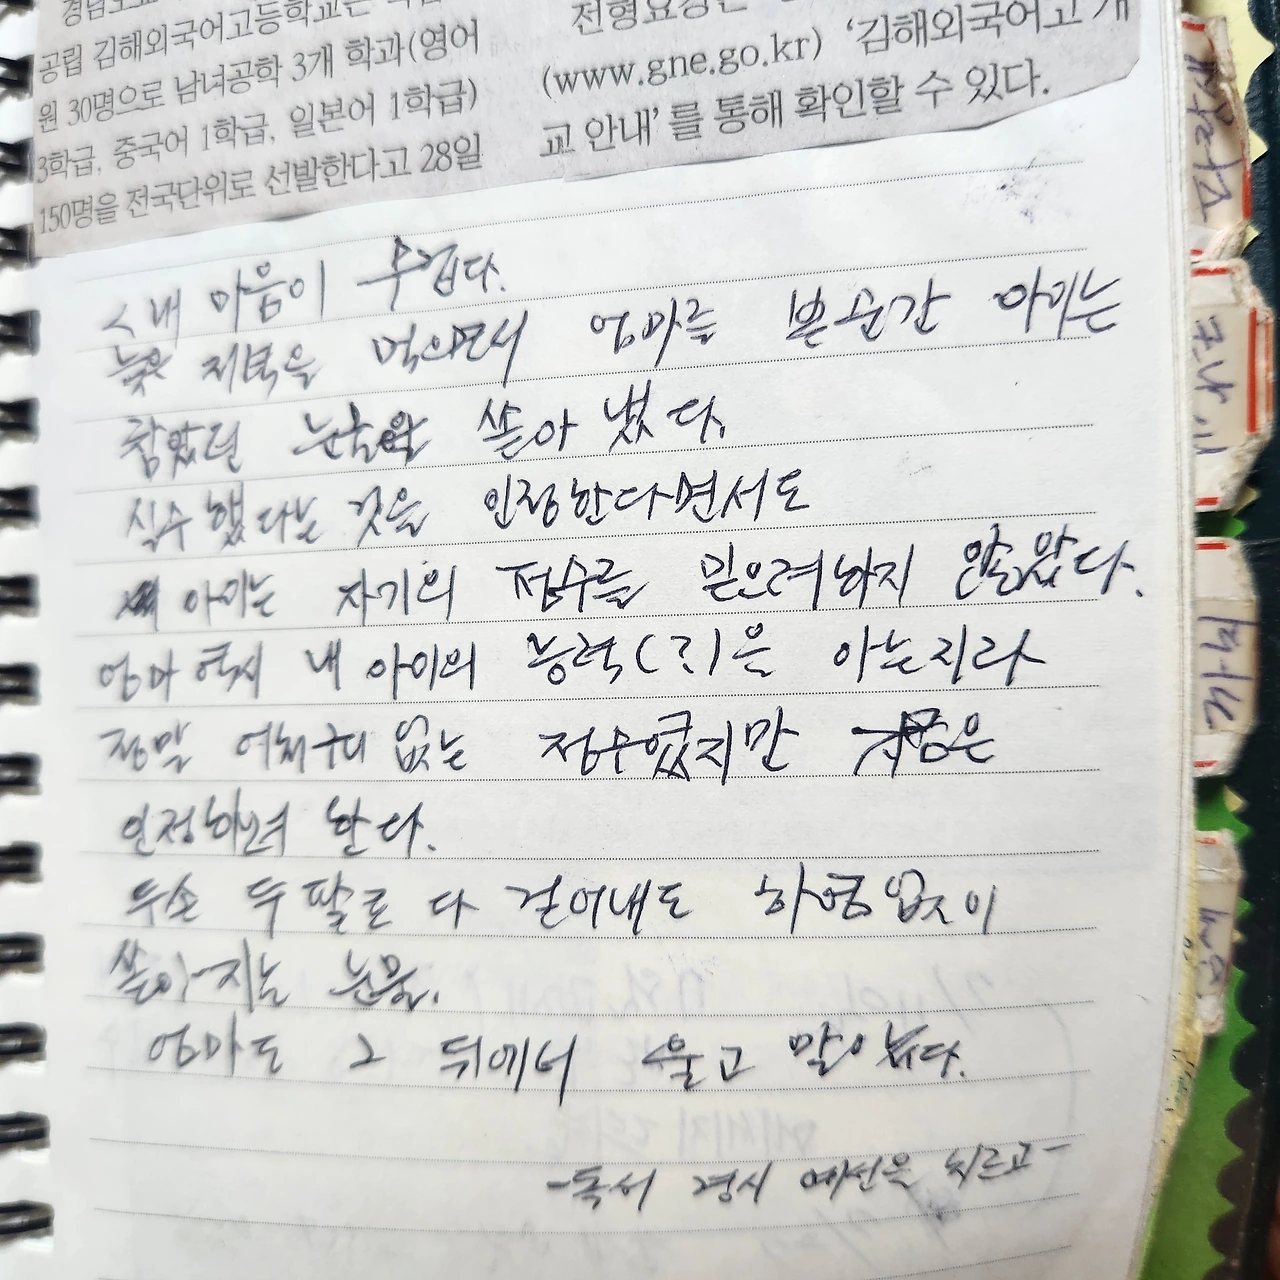 공립 김해외국어고등학교는
원 30명으로 남녀공학 3개 학과(영어
3학급, 중국어 1학급, 일본어 1학급)
150명을 전국단위로 선발한다고 28일
전형요강은
(www.gne.go.kr) ‘김해외국어고 개
교 안내’를 통해 확인할 수 있다.
<내 마음이 무겁다.
늦은 저녁을 먹으면서 엄마를 본 순간 아기는
참았던 눈물을 쏟아 냈다.
실수했다는 것을 인정한다면서도
아기는 자기의 점수를 믿으려하지 않았다.
엄마 역시 내 아이의 능력(?)을 아는지라
정말 어처구니 없는 점수였지만 지금은
인정하려 한다.
두손 두 팔로 다 걷어내도 하염없이
쏟아지는 눈물.
엄마도 그 뒤에서 울고 말았다.
-독서 경시 예선을 치르고-